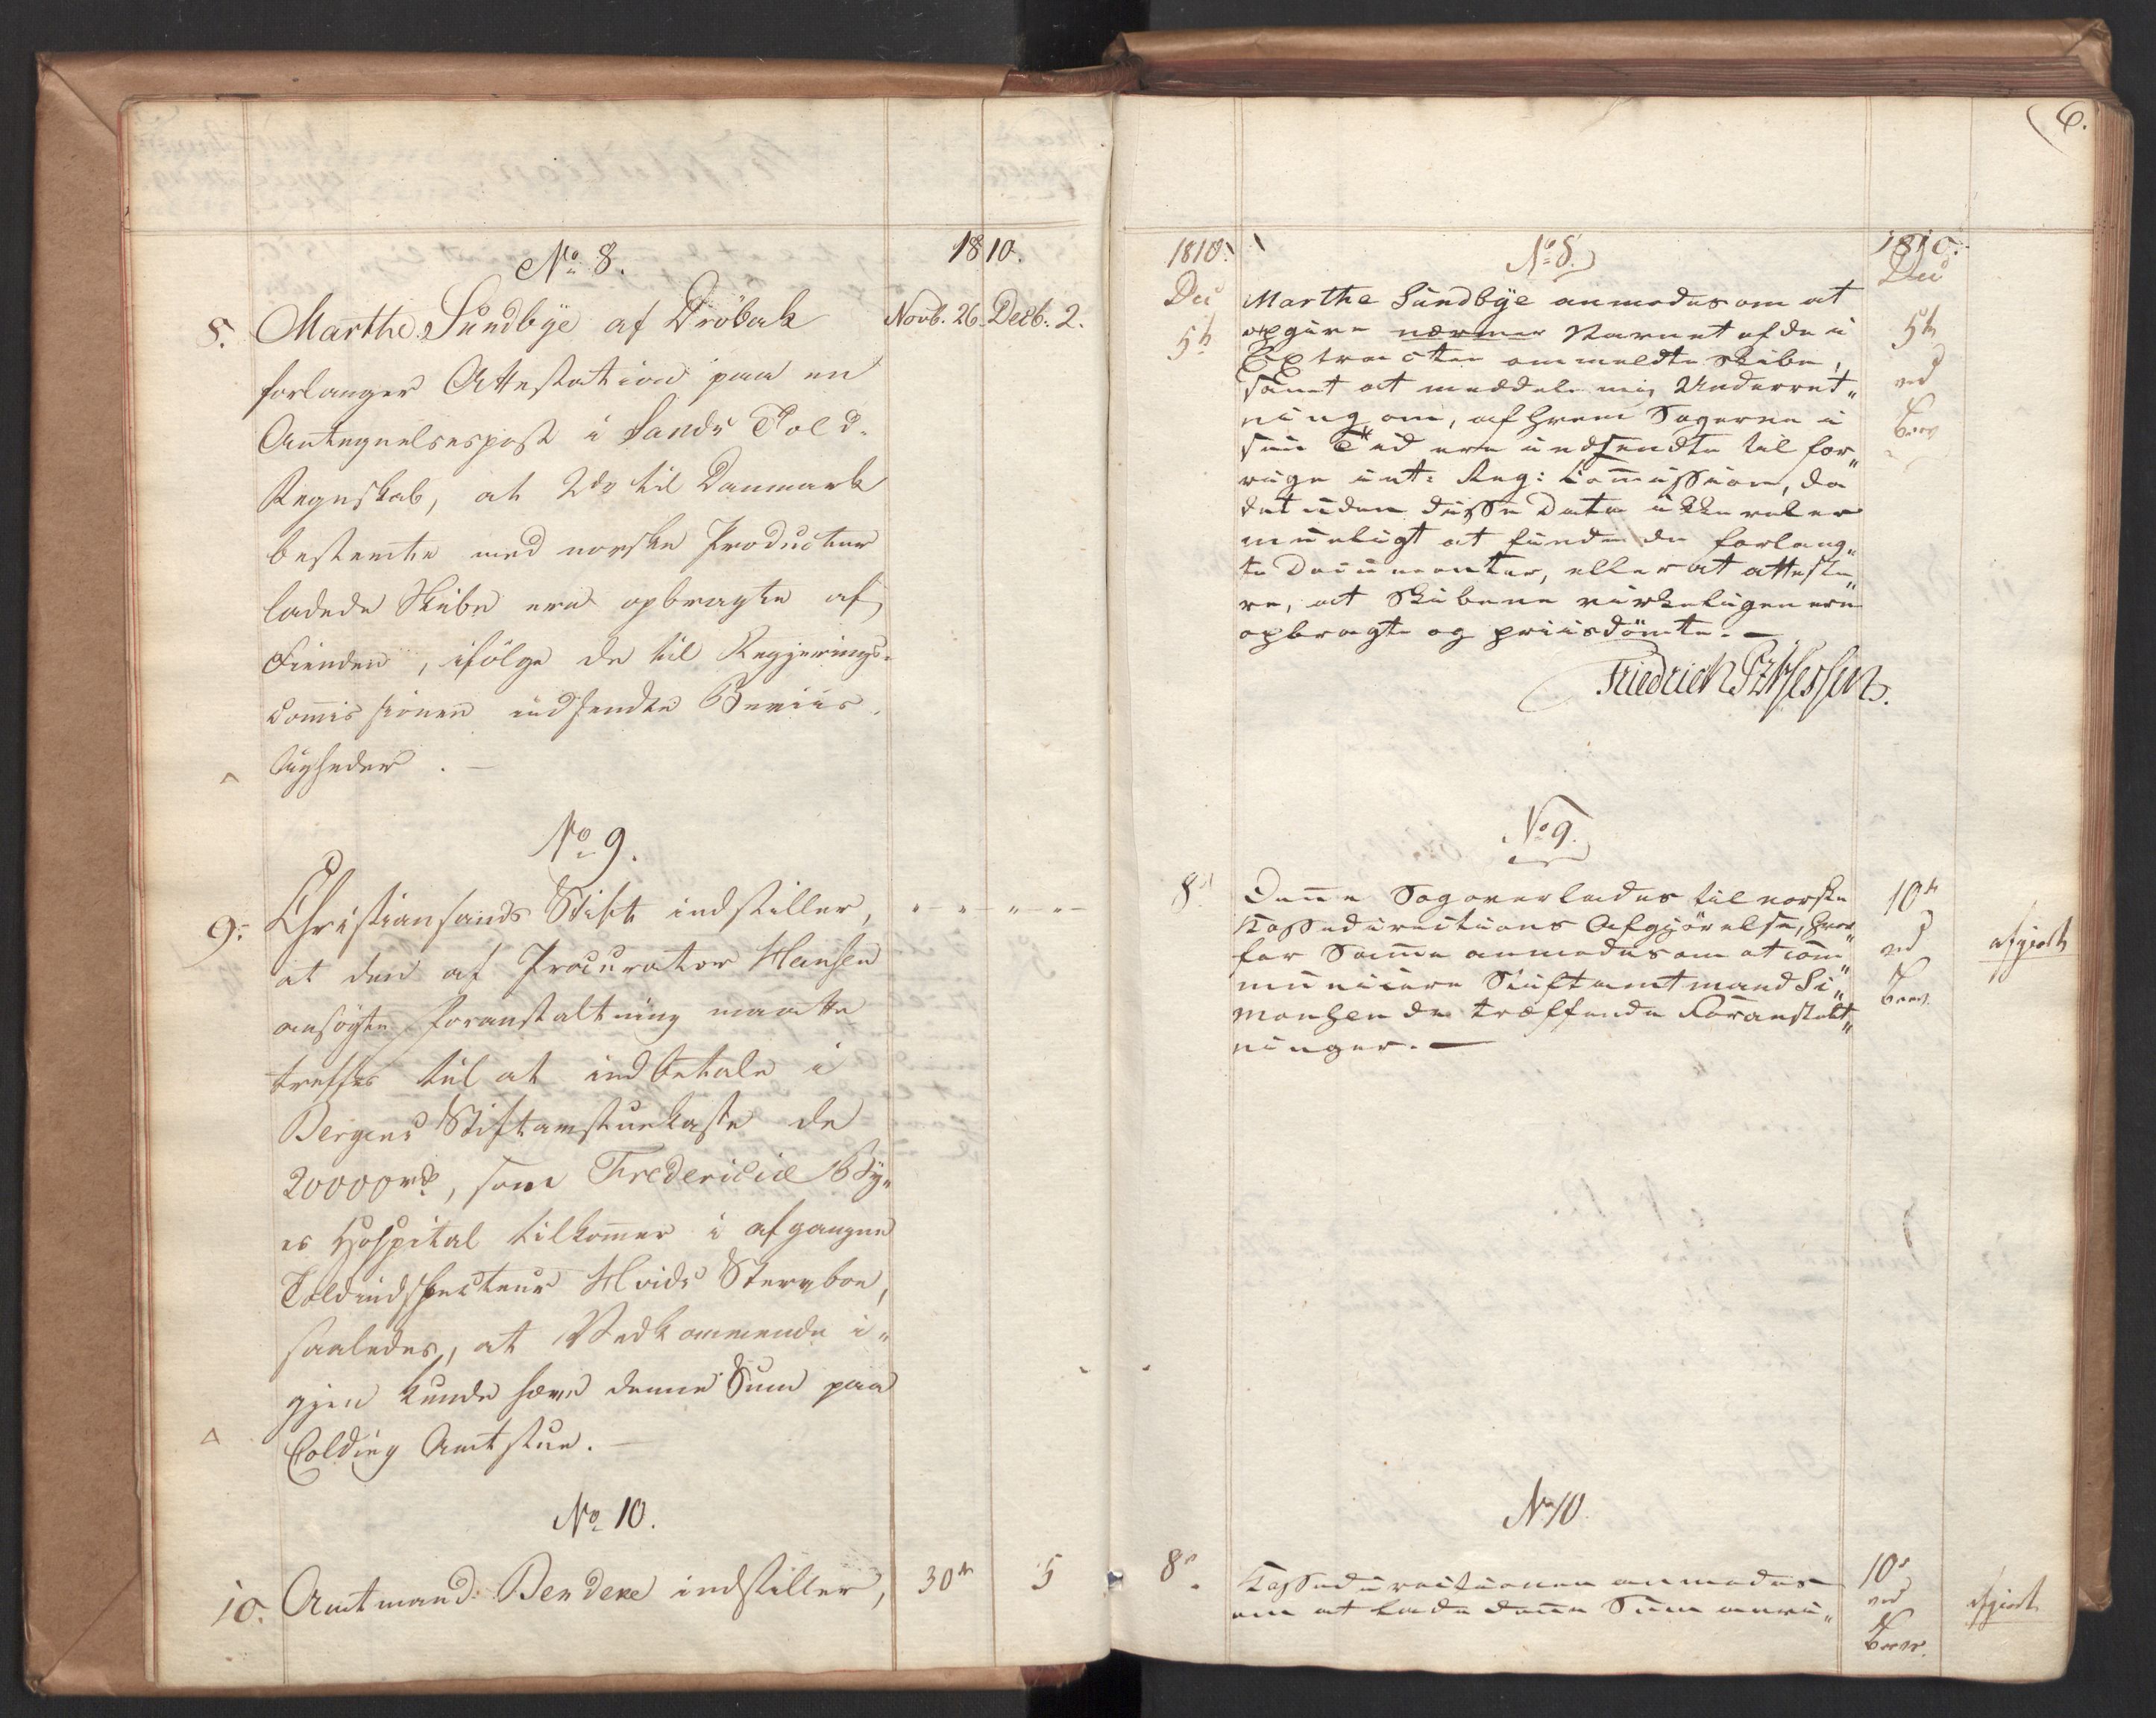 No 8.
1810.
8. Marthe Sundbye af Dröbak Novb. 26. Decb. 2.
forlanger Attestation paa en
Antegnelsespost i Sands Told-
Regnskab, at 2de til Danmark
bestemte med norske Producter
ladede Skibe ere opbragte af
Fienden, ifölge de til Regjerings-
Commissionen indsendte Beviis-
ligheder. —
No 9.
9. Christiansands Stift indstiller,
at den af Procurator Hansen
ansögte Foranstaltning maatte
treffes til at indbetale i
Bergens Stiftamstuekasse de
20000 rd, som Fredericiæ By-
es Hospital tilkommer i afgangne
Toldindspecteur Hvids Stervboe,
saaledes, at Vedkommende i-
gjen kunde hæve denne Sum paa
Colding Amtstue. —
No 10.
10. Amtmand Bendeke indstiller, 30te 5
6.
1810. No 8. 1810.
Dec 5te Marthe Sundbye anmodes om at
opgive nærmere Navnet af de i
Extracten ommeldte Skibe,
samt at meddele mig Underret-
ning om, af hvem Sagerne i
sin Tid ere indsendte til for-
rige int. Reg: Commission, da
det uden disse Data ikke vel er
mueligt at finde de forlang-
te Documenter, eller at atteste-
re, at Skibene virkeligen ere
opbragte og priisdömte. —
Dec 5te ved Brev
Friedrich PzHessen.
No 9.
8de Denne Sag overlades til norske
Kassedirections Afgjörelse, hvor-
for Samme anmodes om at com-
municere Stiftamtmand Si-
monsen de træffende Foranstalt-
ninger. —
10de ved Brev. afgjort
No 10.
8de Kassedirectionen anmodes
om at lade denne Sum anvi-
10de ved Brev. afgjort